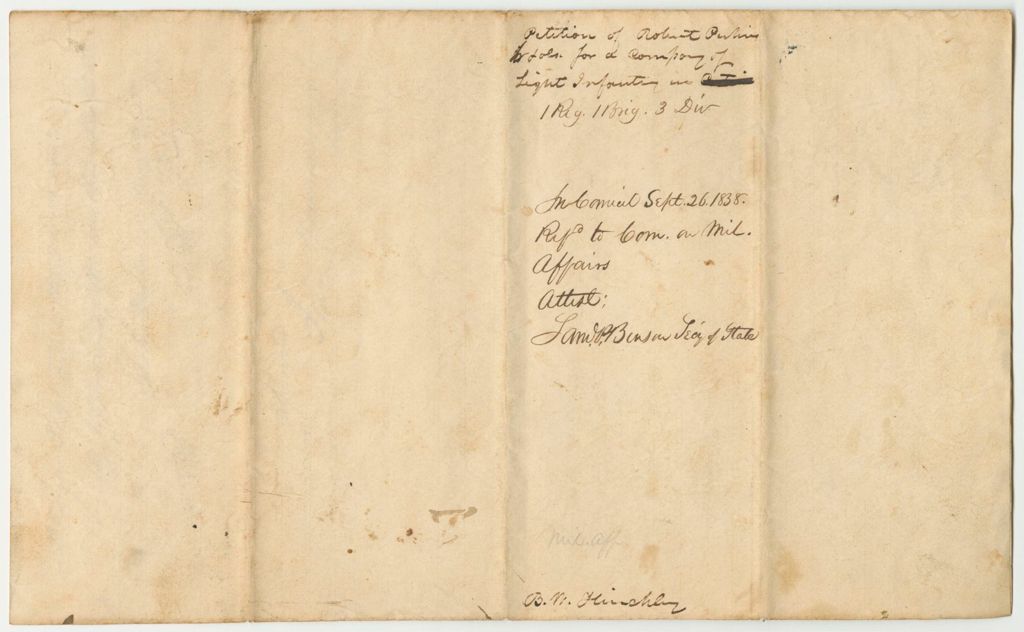 Petition of Robert Perkins
& ols. for a Company of
Light Infantry in
1 Reg. 1 Brig. 3 Div
In Council Sept. 26. 1838.
Refd to Com. on Mil.
Affairs
Attest:
Saml. P. Benson Secy of State
Mil. Aff.
B. W. Hinckley